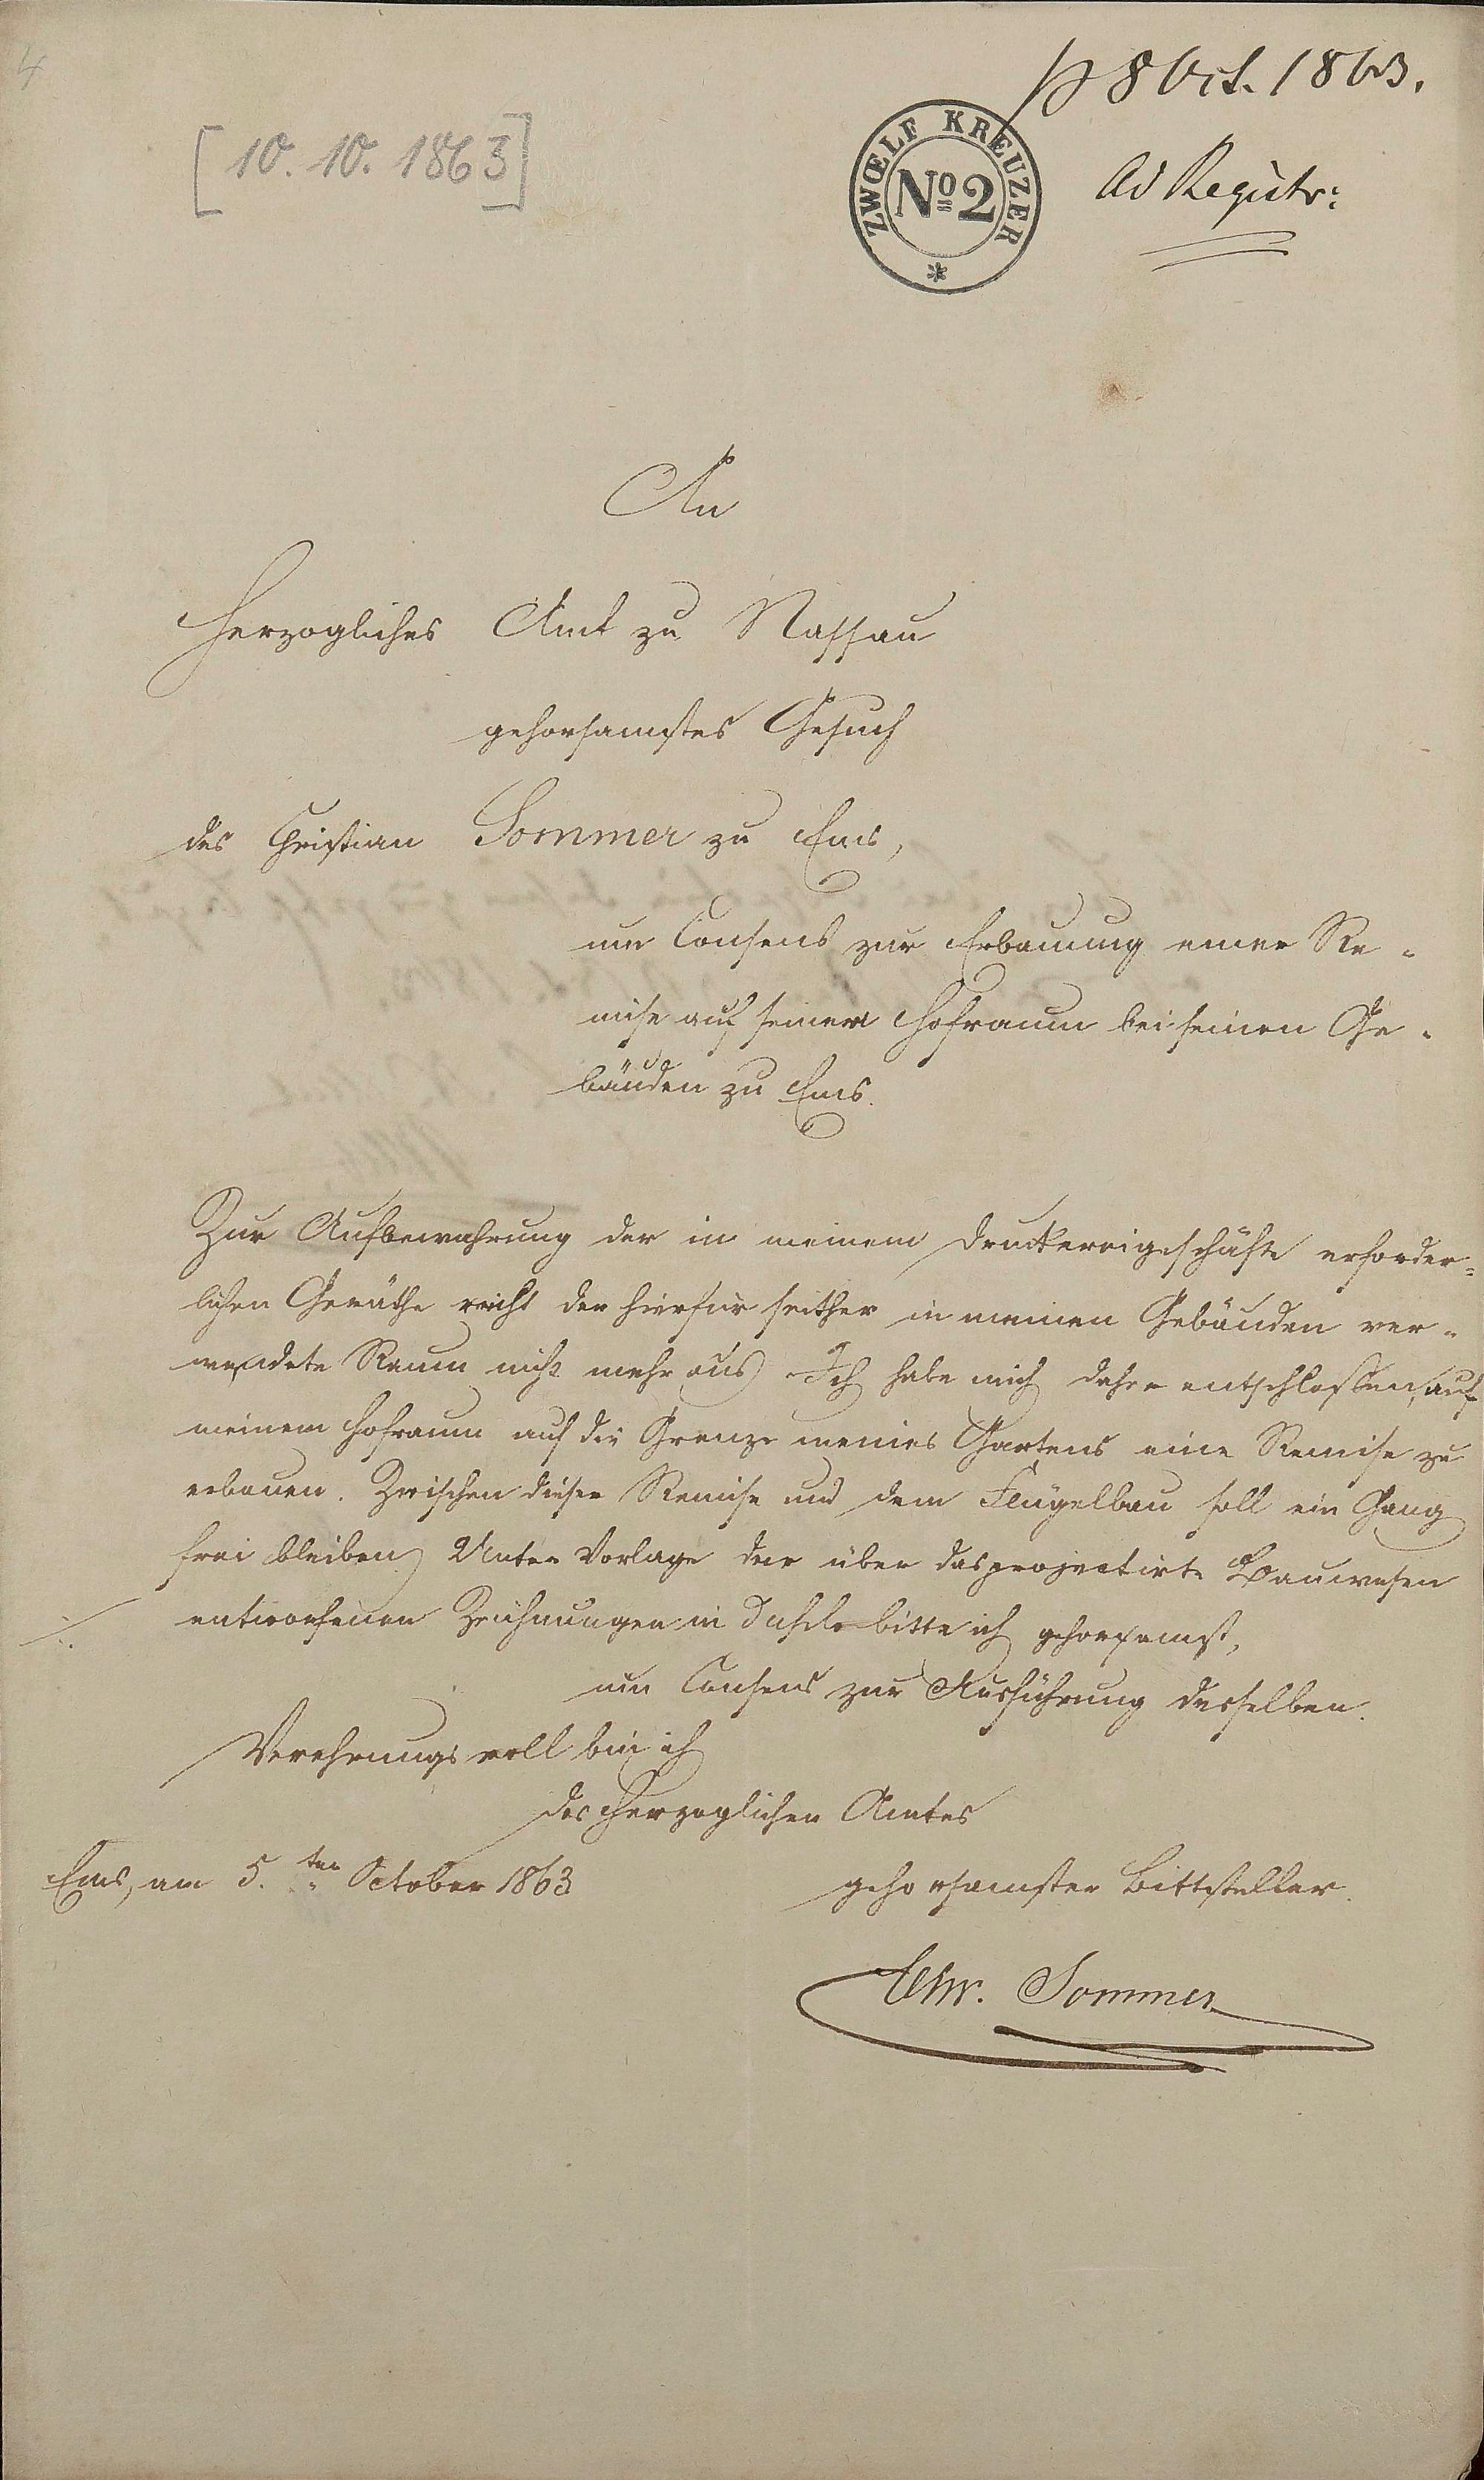 4
p 8 Oct. 1863.
[10. 10. 1863]
ZWŒLF KREUZER
No 2
ad Registr:
An
Herzogliches Amt zu Nassau
gehorsamstes Gesuch
des Christian Sommer zu Ems,
um Consens zur Erbauung einer Re-
mise auf seinem Hofraum bei seinen Ge-
bäuden zu Ems.
Zur Aufbewahrung der in meinem Druckereigeschäfte erforder-
lichen Geräthe reicht der hierfür seither in meinen Gebäuden ver-
wendete Raum nicht mehr aus. Ich habe mich daher entschlossen, auf
meinem Hofraum auf die Grenze meines Gartens eine Remise zu
erbauen. Zwischen dieser Remise und dem Flügelbau soll ein Gang
frei bleiben. Unter Vorlage der über das projectirte Bauwesen
entworfenen Zeichnungen in duplo bitte ich gehorsamst,
um Consens zur Ausführung desselben.
Verehrungsvoll bin ich
des Herzoglichen Amtes
Ems, am 5. ten October 1863
gehorsamster Bittsteller.
Chr. Sommer